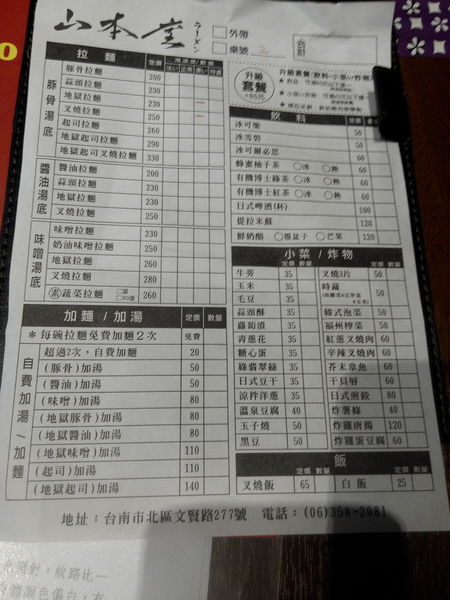 山本堂 ラーメン
□外帶
□桌號 2
合計
拉麵 定價 濃度/數量
豚骨湯底
豚骨拉麵 200
蒜頭拉麵 230
地獄拉麵 230 一
叉燒拉麵 250 一
起司拉麵 260
地獄起司拉麵 290
地獄起司叉燒拉麵 330
醬油湯底
醬油拉麵 200
蒜頭拉麵 230
地獄拉麵 230
叉燒拉麵 250
味噌湯底
味噌拉麵 230
奶油味噌拉麵 250
地獄拉麵 260
叉燒拉麵 280
(素)蔬菜拉麵 260
加麵/加湯 定價 數量
*每碗拉麵免費加麵2次 免費
自費加湯/加麵
超過2次,自費加麵 20
(豚骨)加湯 50
(醬油)加湯 50
(味噌)加湯 80
(地獄豚骨)加湯 80
(地獄醬油)加湯 80
(地獄味噌)加湯 110
(起司)加湯 110
(地獄起司)加湯 140
升級套餐 +85元
升級套餐(飲料+小菜/炸物)
飲料 定價 數量
冰可樂 50
冰雪碧 50
冰可爾必思 60
蜂蜜柚子茶 ○冰 ○熱 60
有機博士綠茶 ○冰 ○熱 60
有機博士紅茶 ○冰 ○熱 60
日式啤酒(杯) 100
提拉米蘇 120
鮮奶酪 ○覆盆子 ○芒果 120
小菜/炸物
定價 數量 定價 數量
牛蒡 35 叉燒3片 50
玉米 35 時蔬 50
毛豆 35
蒜頭酥 35 韓式泡菜 50
蘿蔔漬 35 福州榨菜 50
青蔥花 35 紅蔥叉燒肉 60
糖心蛋 35 辛辣叉燒肉 60
綠翡翠絲 35 芥末章魚 60
日式豆干 35 干貝唇 60
涼拌洋蔥 35 日式煎餃 80
溫泉豆腐 40 炸薯條 40
玉子燒 50 炸雞唐揚 120
黑豆 50 炸雞蛋豆腐 60
飯
定價 數量 定價 數量
叉燒飯 65 白飯 25
地址:台南市北區文賢路277號 電話:(06)358-2081